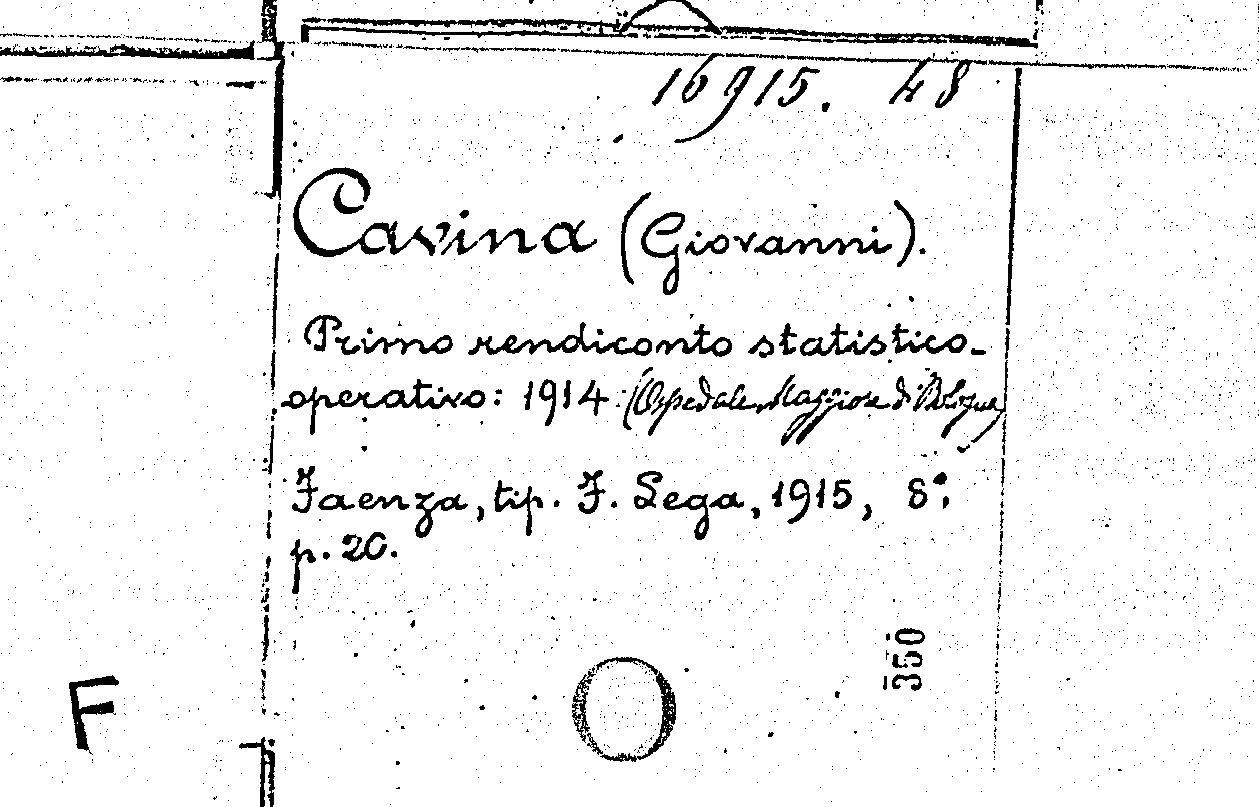 16915. 48
Cavina (Giovanni).
Primo rendiconto statistico-
operativo: 1914 (Ospedale Maggiore di Bologna)
Faenza, tip. F. Lega, 1915, 8°,
p. 20.
350
F